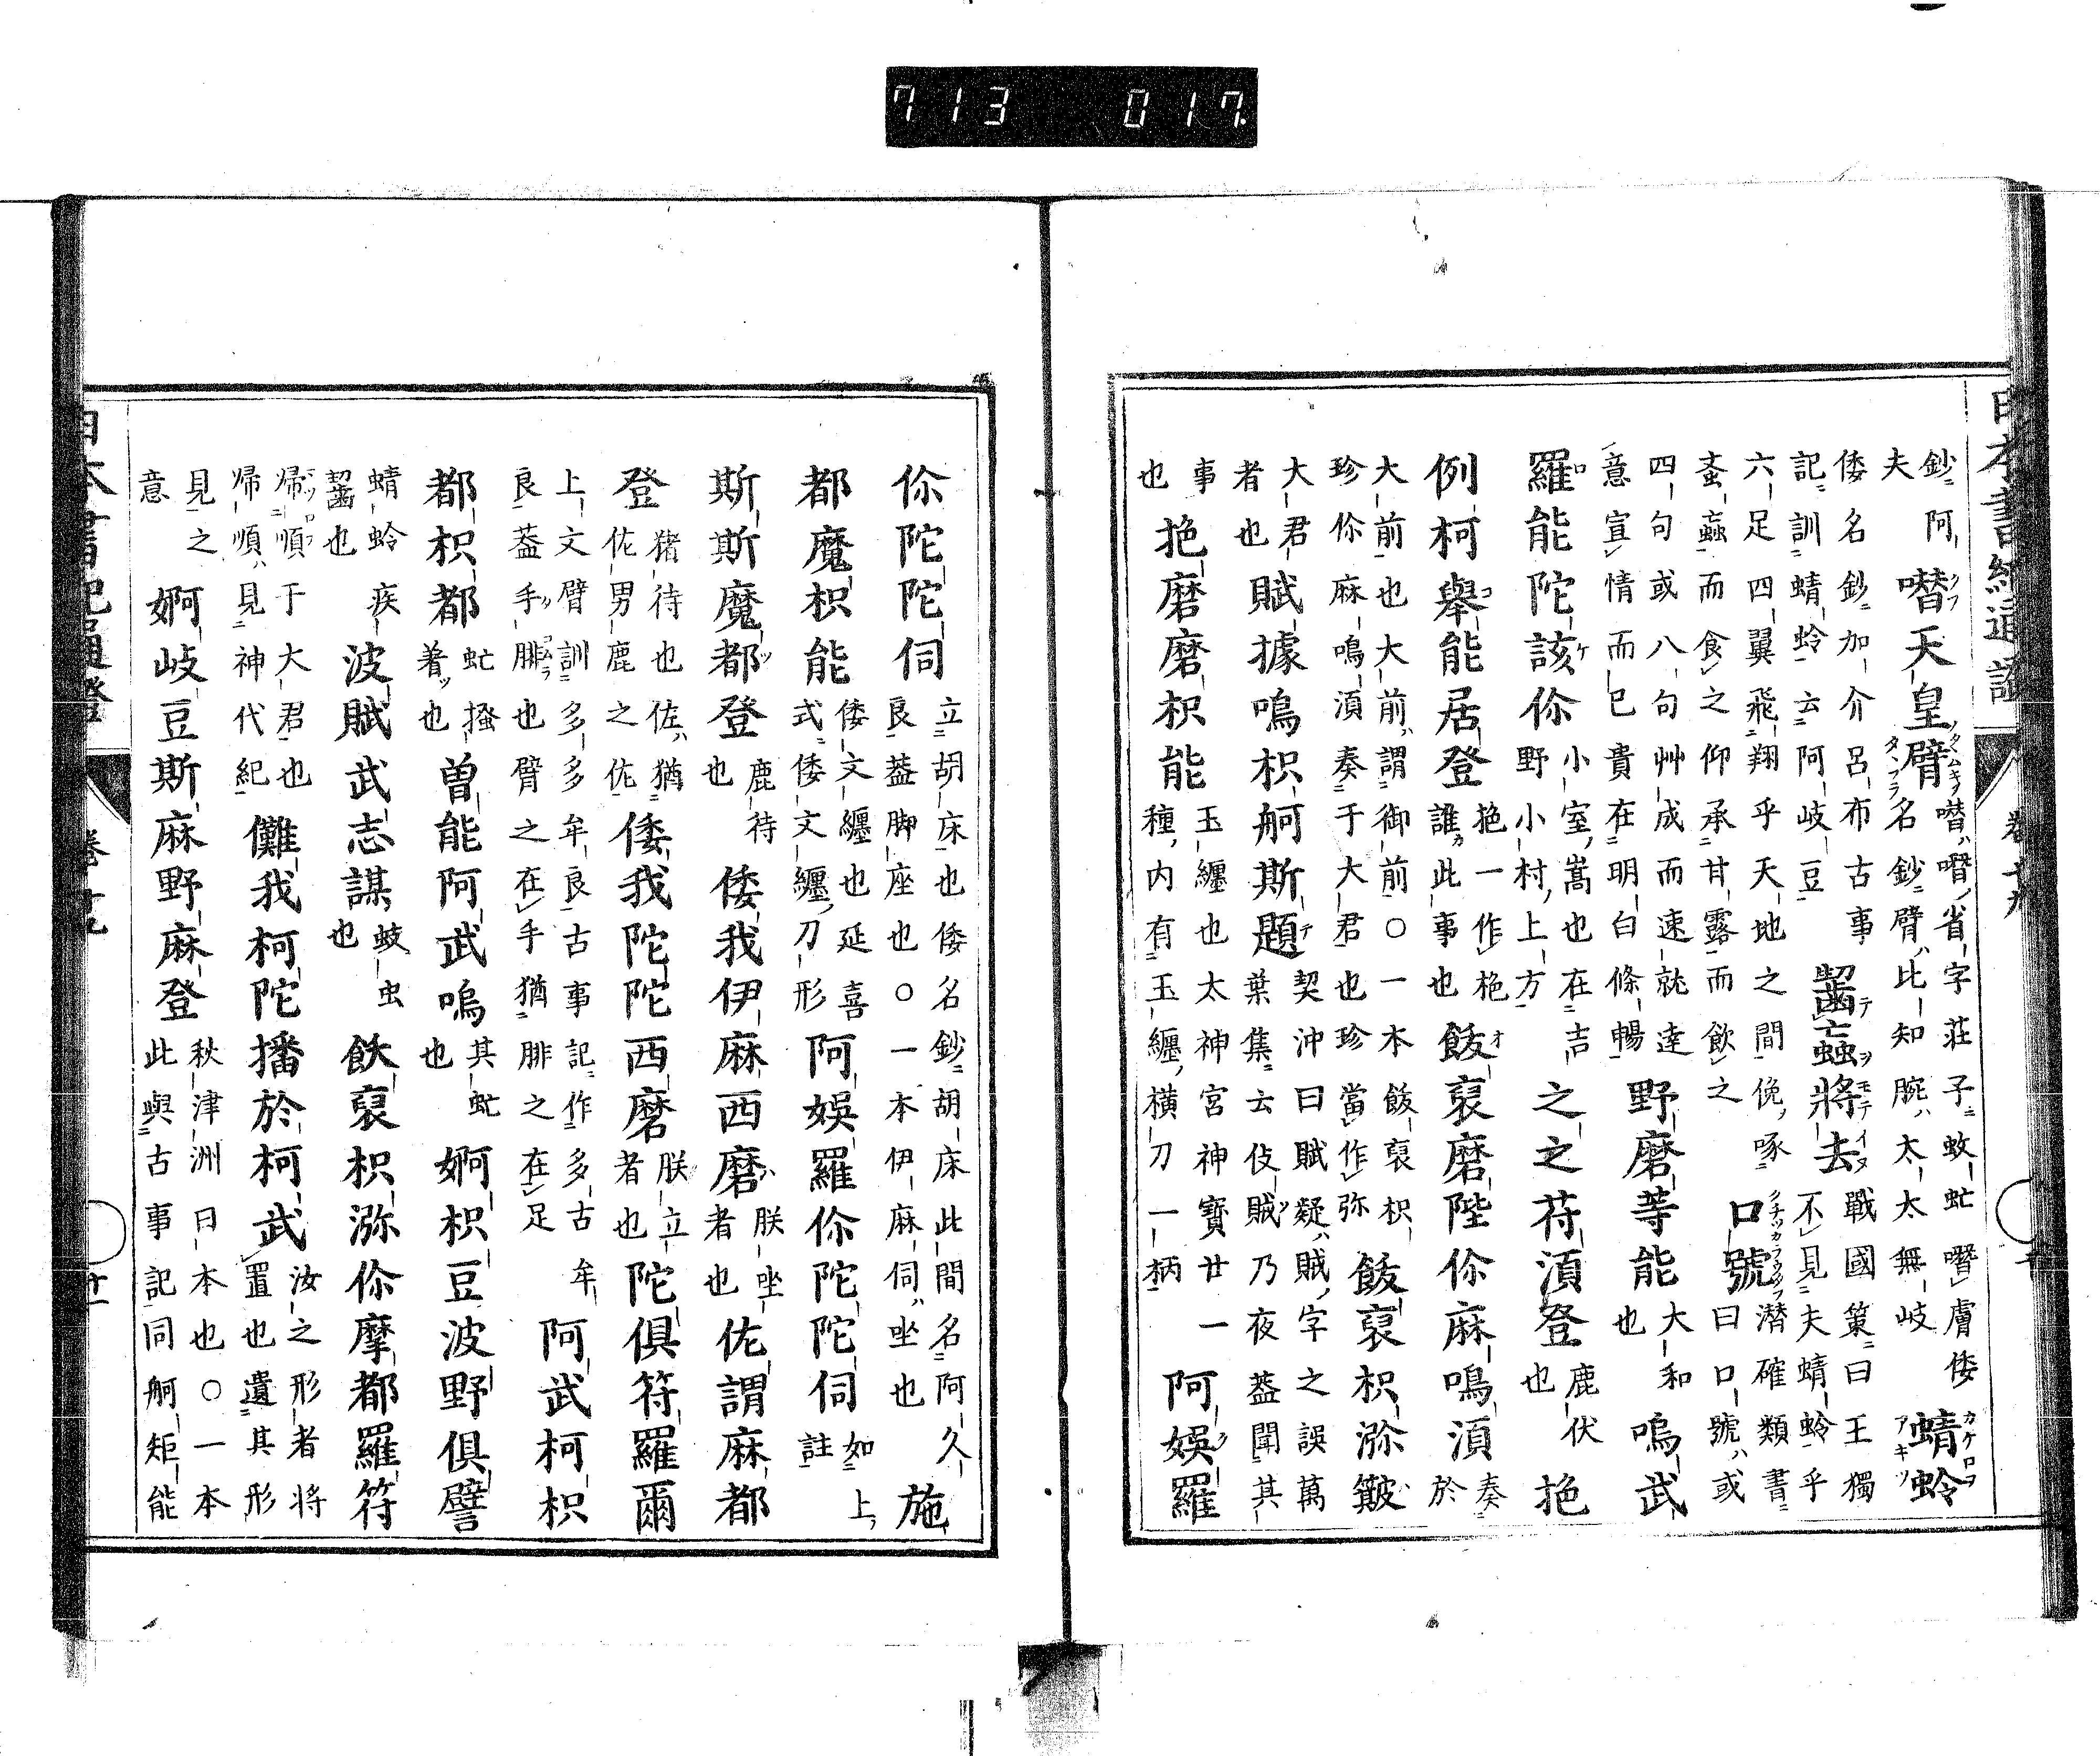 713 017.
日本書紀通證 卷十九
鈔阿 夫 噆天皇臂 噆噆省字莊子蚊虻噆膚倭名鈔臂比知腕太太無岐 蜻蛉
倭名鈔加介呂布古事記訓蜻蛉云阿岐豆 齧蝱將去 戰國策曰王獨不見夫蜻蛉乎
六足四翼飛翔乎天地之間俛啄蚉蝱而食之仰承甘露而飲之 口號 潛確類書曰口號或
四句或八句艸成而速就達意宣情而已貴在明白條暢 野磨等能 大和也 嗚武
羅能陀該伱 小室嵩也在吉野小村上方 之之苻湏登 鹿伏也 拖
例柯舉能居登 拖一作柂誰此事也 飫裒磨陛伱麻嗚湏 奏於
大前也大前謂御前○一本飫裒枳珍伱麻嗚湏奏于大君也珍當作弥 飫裒枳瀰皷
大君者也 賦據嗚枳舸斯題 契沖曰賦疑賊字之誤萬葉集云伎賊乃夜葢聞其
事也 拖磨磨枳能 玉纒也太神宮神寶廿一種内有玉纒横刀一柄 阿娯羅
伱陀陀伺 立胡床也倭名鈔胡床此間名阿久良葢脚座也○一本伊麻伺坐也 施
都魔枳能 倭文纒也延喜式倭文纒刀形 阿娯羅伱陀陀伺 如上註
斯斯魔都登 鹿待也 倭我伊麻西磨 朕坐者也 佐謂麻都
登 猪待也佐猶佐男鹿之佐 倭我陀陀西磨 朕立者也 陀倶符羅爾
上文臂訓多多牟良古事記作多古牟良葢手腓也臂之在手猶腓之在足 阿武柯枳
都枳都 虻搔着也 曽能阿武嗚 其虻也 婀枳豆波野倶譬
蜻蛉疾齧也 波賦武志謀 蚑虫也 飫裒枳瀰伱摩都羅符
歸順于大君也歸順見神代紀 儺我柯陀播於柯武 汝之形者將置也遺其形
見之意 婀岐豆斯麻野麻登 秋津洲日本也○一本此與古事記同舸矩能
日本書紀通證 卷十九 廿一